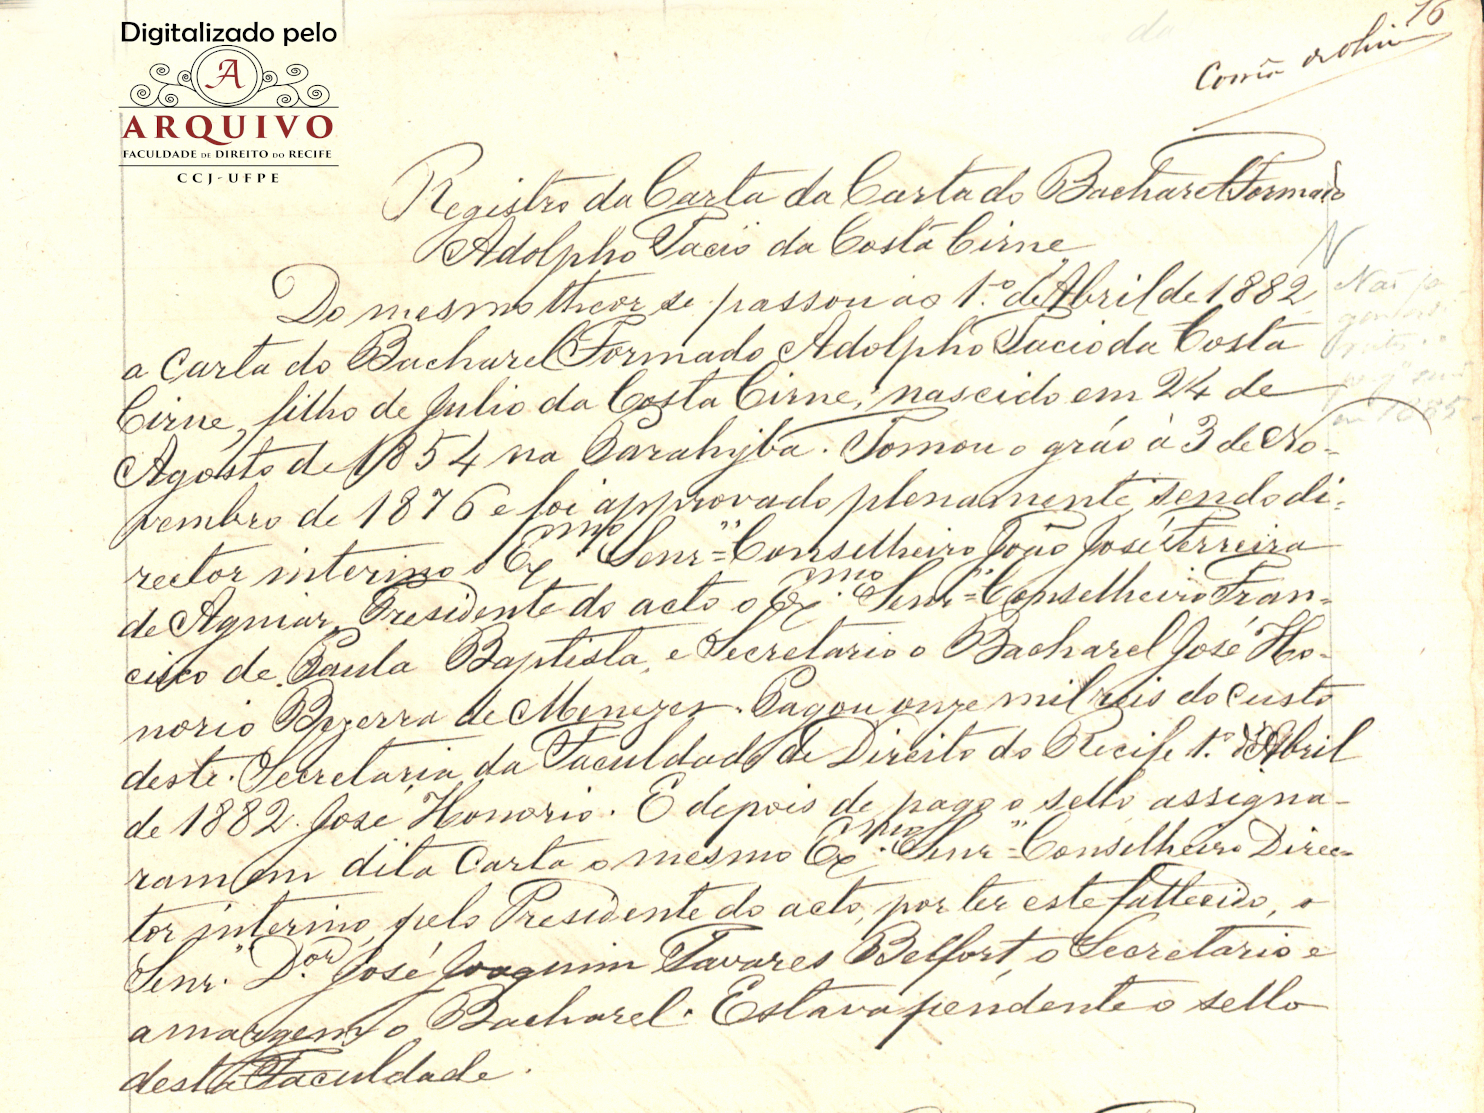 Digitalizado pelo
A
ARQUIVO
FACULDADE DE DIREITO DO RECIFE
CCJ-UFPE
16
Registro da Carta da Carta do Bacharel Formado
Adolpho Tacio da Costa Cirne
Do mesmo theor se passou ao 1.º de Abril de 1882
a Carta do Bacharel Formado Adolpho Tacio da Costa
Cirne, filho de Julio da Costa Cirne, nascido em 24 de
Agosto de 1854 na Parahyba. Tomou o gráo à 3 de No-
vembro de 1876 e foi approvado plenamente, sendo di-
rector interino o Ex.mo Senr. Conselheiro João José Ferreira
de Aguiar, Presidente do acto o Ex.mo Senr. Conselheiro Fran-
cisco de Paula Baptista, e Secretario o Bacharel José Ho-
norio Bezerra de Menezes. Pagou onze mil reis do custo
deste. Secretaria da Faculdade de Direito do Recife 1.º d'Abril
de 1882. José Honorio. E depois de pago o sello assigna-
ram em dita Carta o mesmo Ex.mo Senr. Conselheiro Direc-
tor interino, pelo Presidente do acto, por ter este fallecido, o
Senr. D.or José Joaquim Tavares Belfort, o Secretario e
a margem o Bacharel. Estava pendente o sello
desta Faculdade.